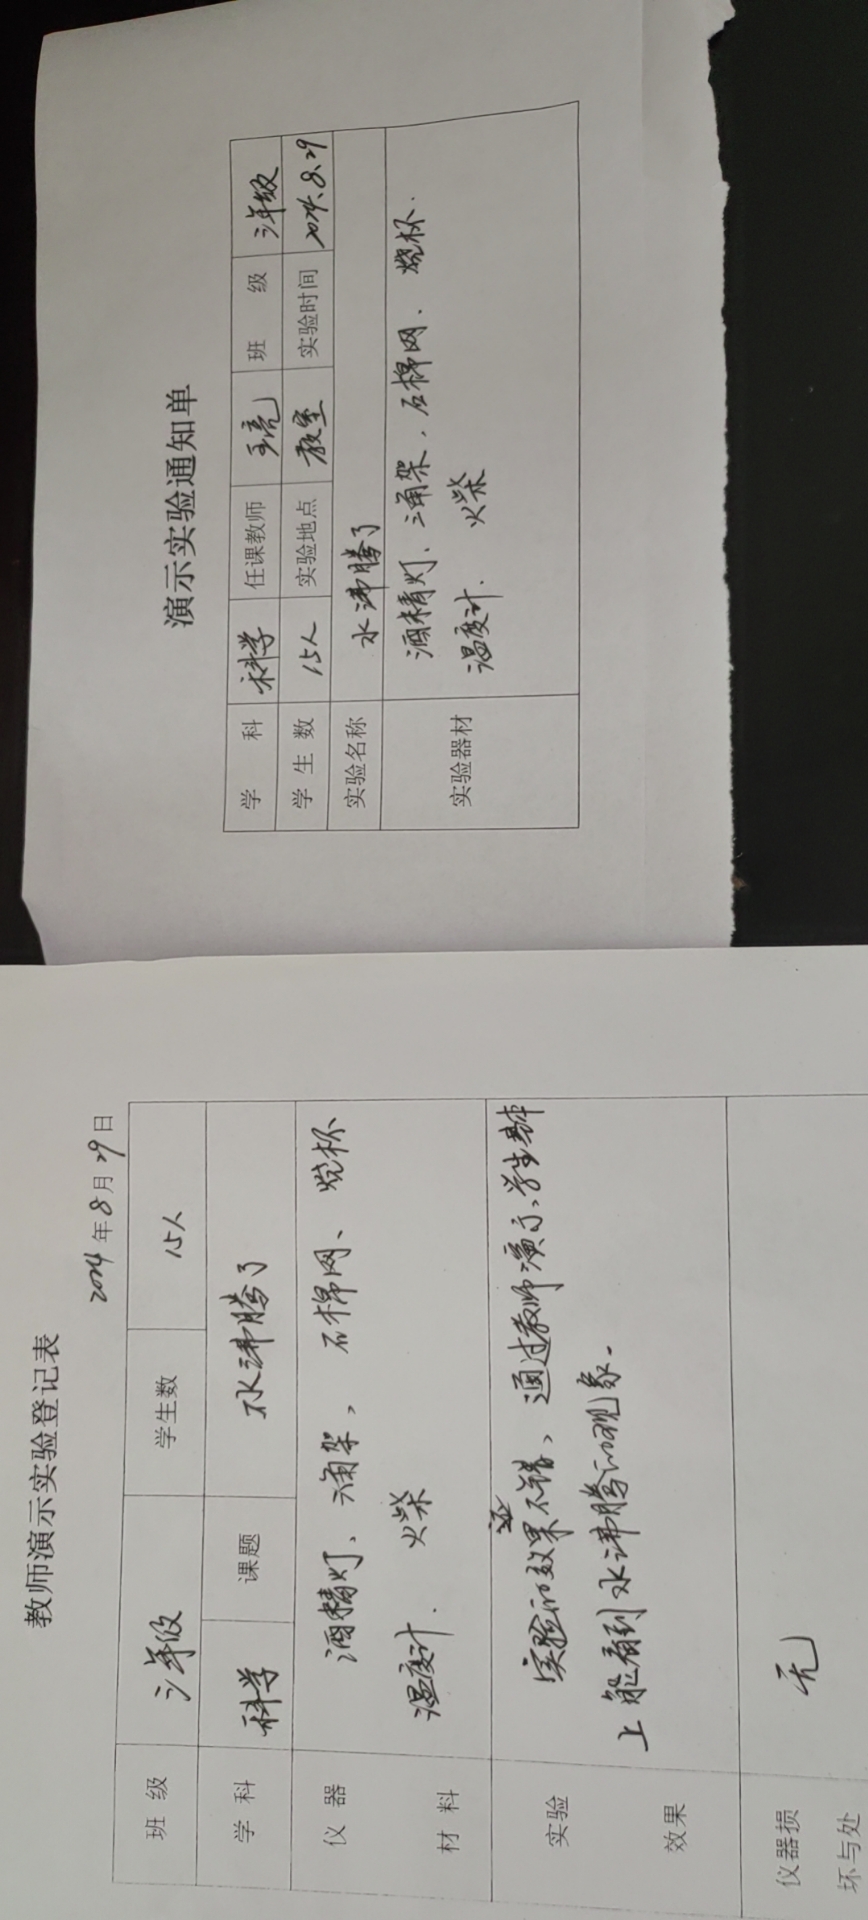 演示实验通知单
学 科 科学 任课教师 班 级 三年级
学 生 数 15人 实验地点 教室 实验时间 2024.8.29
实验名称 水沸腾了
实验器材 酒精灯、三角架、石棉网、烧杯.
温度计. 火柴
教师演示实验登记表
2024年8月29日
班 级 三年级 学生数 15人
学 科 科学 课题 水沸腾了
仪 器 酒精灯、三角架, 石棉网、烧杯
材 料 温度计. 火柴
实验 实验的效果还不错、通过教师演示、学生基本
效果 上能看到水沸腾的现象.
仪器损 无
坏与处